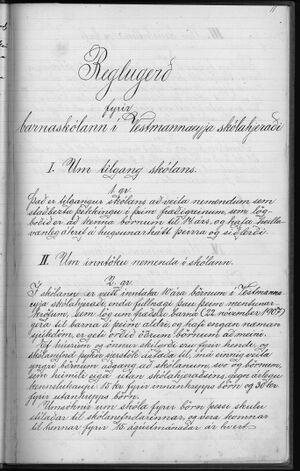 11
Reglugerð
fyrir
barnaskólann í Vestmannaeyja skólahjeraði
I. Um tilgang skólans.
1. gr.
Það er tilgangur skólans að veita nemendum sem
staðbesta þekkingu í þeim fræðigreinum, sem lög-
boðið er að kenna börnum til 14 árs, og hafa holl
vænleg áhrif á hugsunarhátt þeirra og siðferði.
II. Um inntöku nemenda í skólann.
2. gr.
Í skólann er veitt inntaka 10 ára börnum í Vestmanna-
eyja skólahjeraði, enda fullnægi þau þeim mentunar
kröfum, sem lög um fræðslu barna (22. nóvember 1907)
gera til barna á þeim aldri, og hafi engan næman
sjúkdóm, er geti orðið öðrum börnum að meini.
Ef húsrúm og önnur skilyrði eru fyrir hendi, og
skólanefnd þykir sérstök ástæða til, má einnig veita
yngri börnum aðgang að skólanum, svo og börnum,
sem heimili eiga utan skólahjeraðsins, gegn árlegu
kenslukaupi 15 kr. fyrir innanhrepps börn og 30 kr.
fyrir utanhrepps börn.
Umsóknir um skóla fyrir börn þessi skulu
stílaðar til skólanefndarinnar, og vera komnar
til hennar fyrir 15. ágústmánaðar ár hvert.